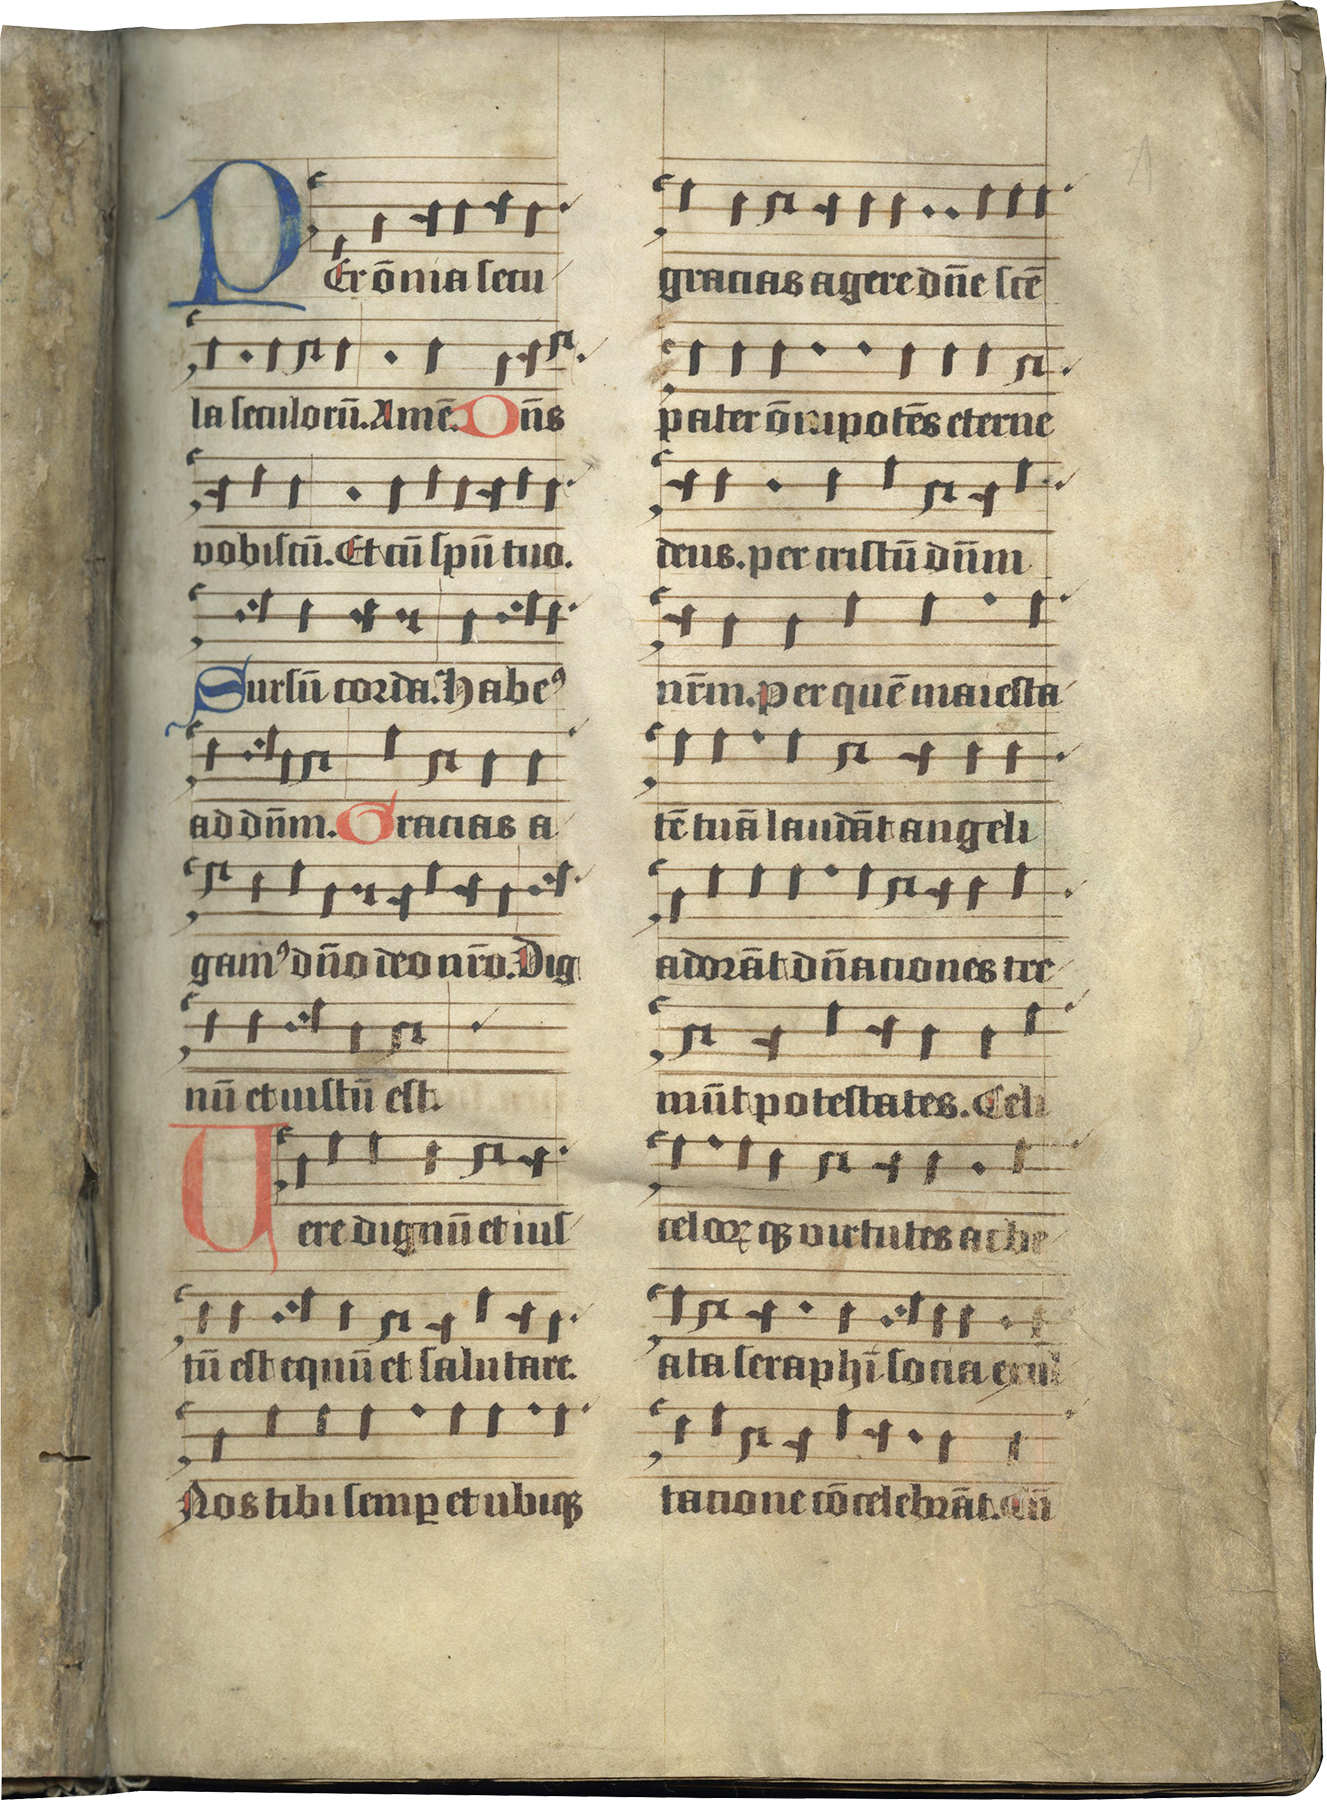 PEr o̅nia secu
la seculoru̅. Ame̅. Dn̅s
vobiscu̅. Et cu̅ spu̅ tuo.
Sursu̅ corda. Habeꝰ
ad dn̅m. Gracias a
gamꝰ dn̅o deo nr̅o. Dig
nu̅ et iustu̅ est.
Uere dignu̅ et ius
tu̅ est equu̅ et salutare.
Nos tibi semꝑ et ubiqꝫ
gracias agere dn̅e sce̅
pater o̅nipote̅s eterne
deus. per cristu̅ dn̅m
nr̅m. Per que̅ maiesta
te̅ tua̅ lauda̅t angeli
adora̅t dn̅aciones tre
mu̅t potestates. Celi
celoꝝ qꝫ virtutes ac be
ata seraphi̅ socia exul
tacione co̅celebra̅t. Cu̅
1